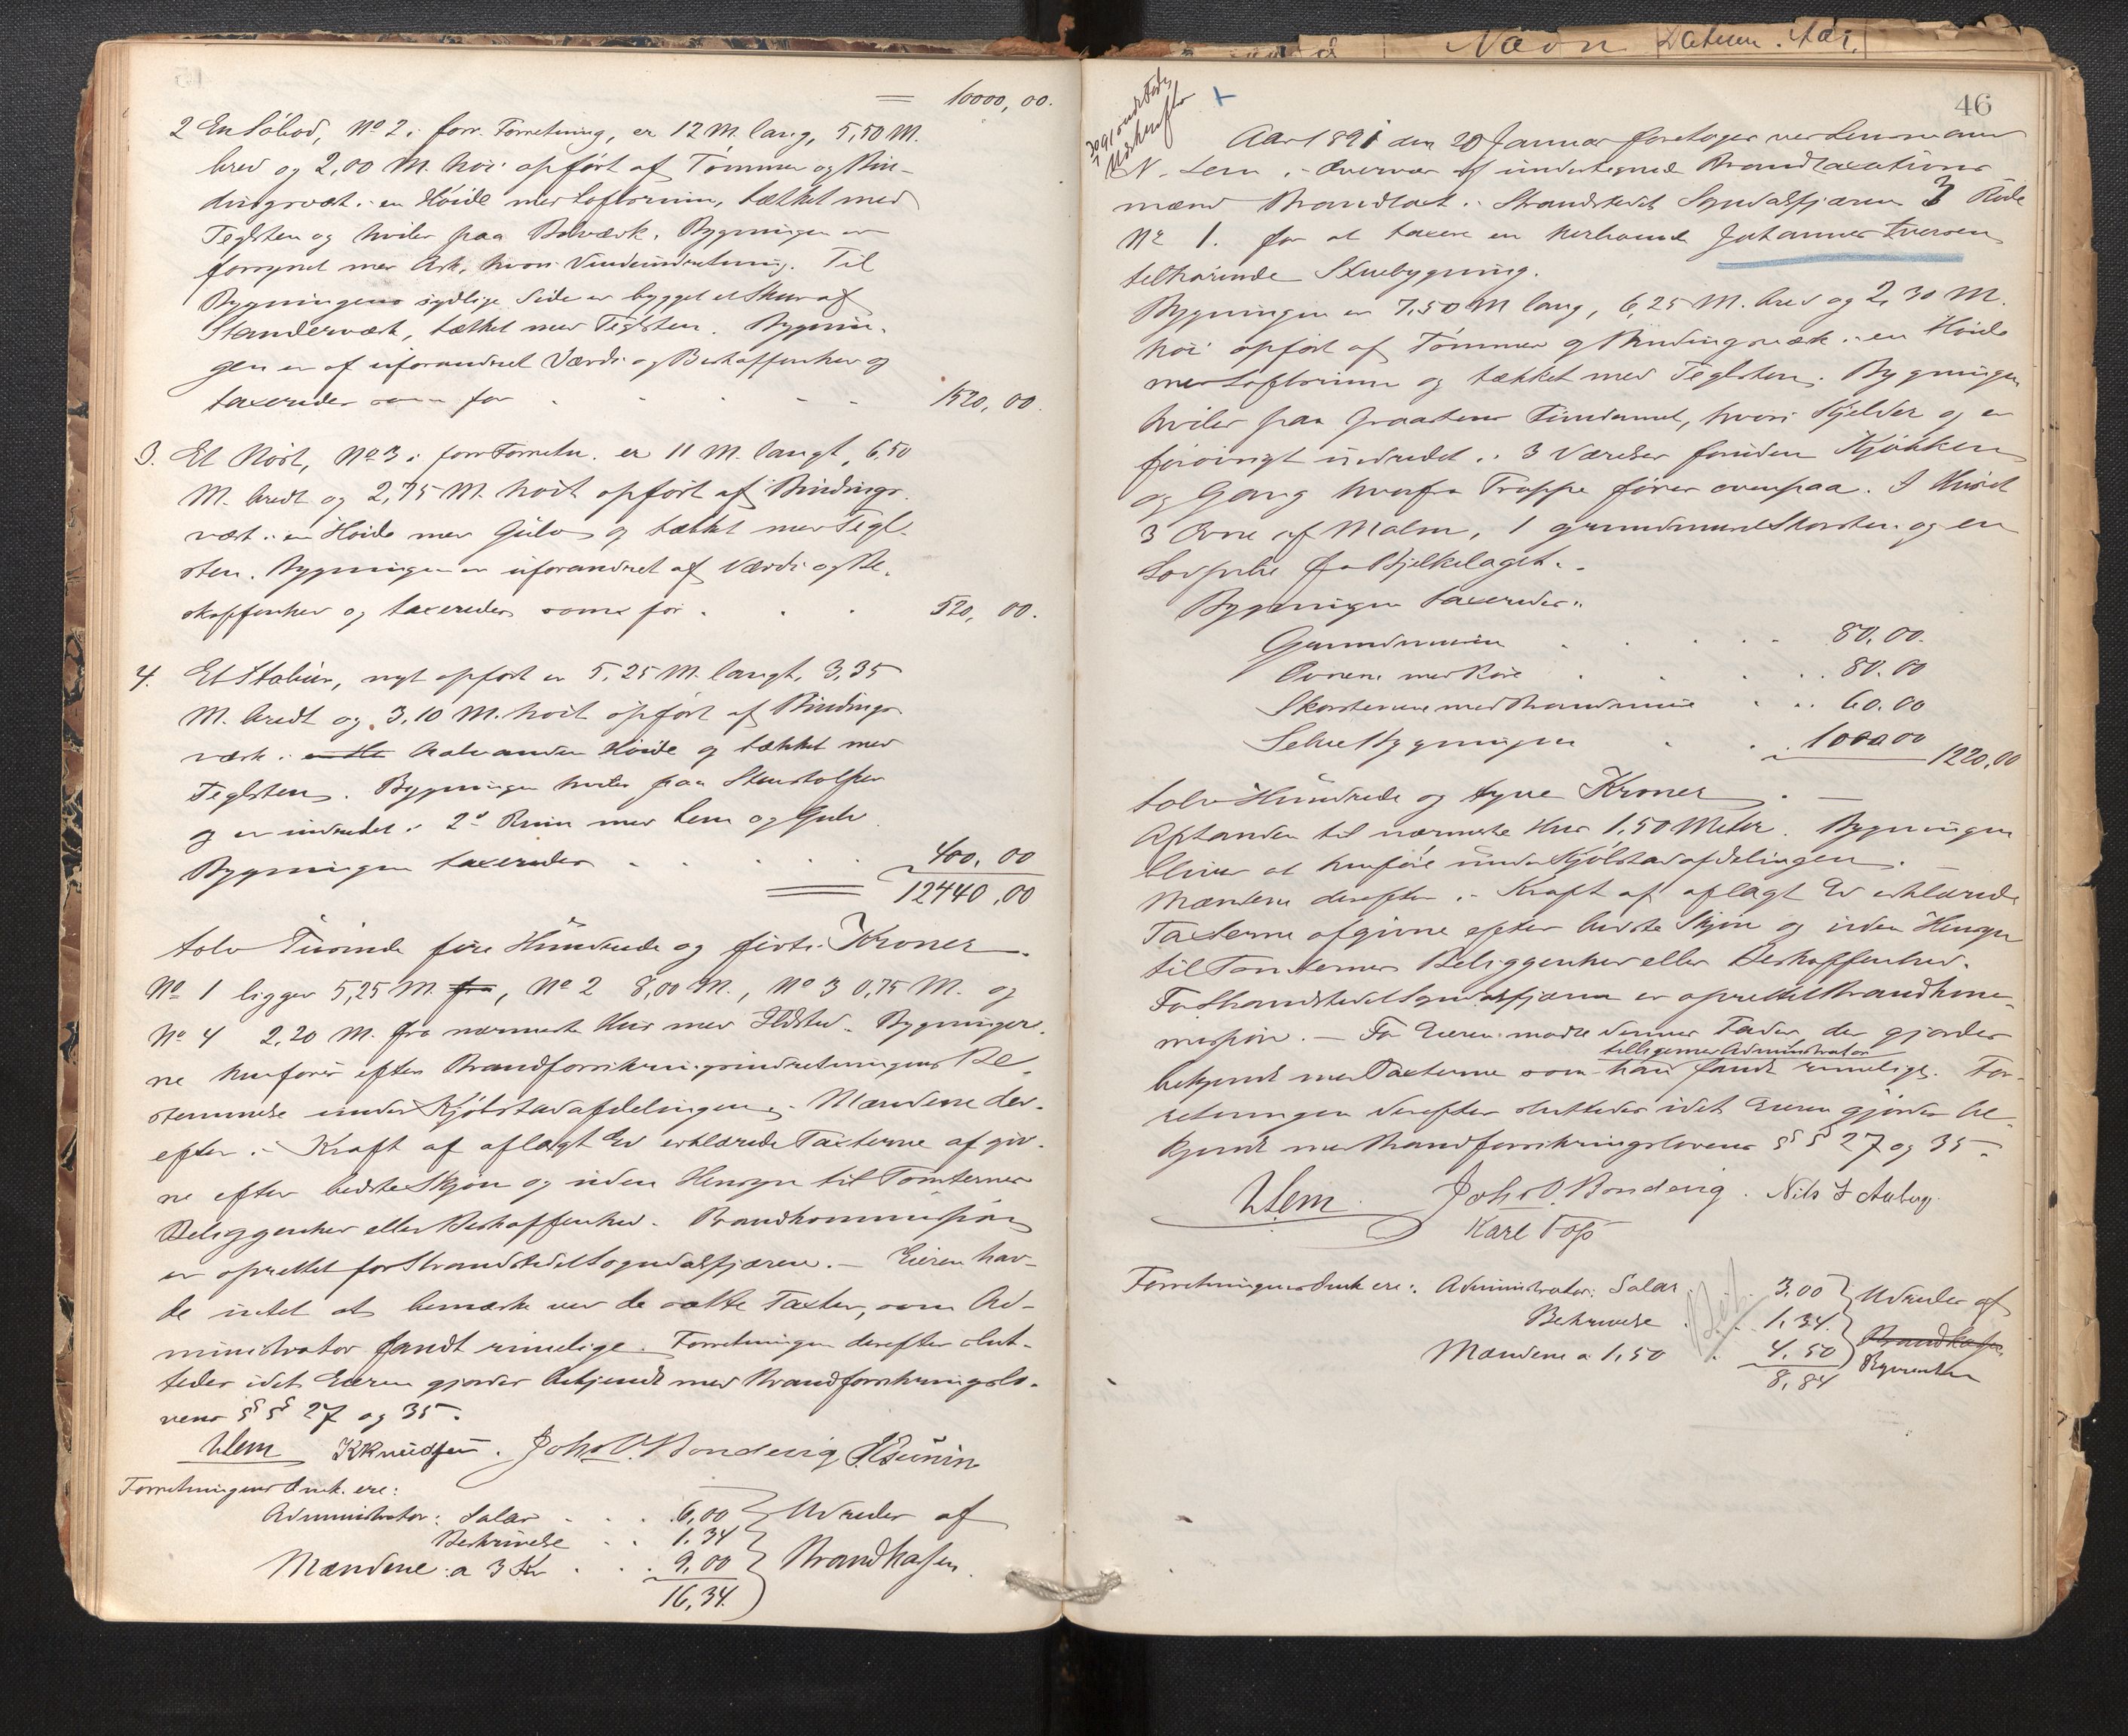 = 10000,00.
2 En Söbod, No 2 i forr. Forretning, er 12 M. lang, 5,50 M.
bred og 2,00 M. höi opfört af Tömmer og Bin-
dingsværk i en Höide med Loftsrum, tækket med
Teglsten og hviler paa Bolværk. Bygningen er
forsynet med Ark, hvori Vindeindretning. Til
Bygningens sydlige Side er bygget et Skur af
Standerværk, tækket med Teglsten. Bygnin-
gen er af uforandret Værdi og Beskaffenhed og
taxeredes som för 1520,00.
3. Et Nöst, No 3 i forr. Forretn. er 11 M. langt, 6,50
M. bredt og 2,75 M. höit opfört af Bindings-
værk i en Höide med Gulv og tækket med Tegl-
sten. Bygningen er uforandret af Værdi og Be-
skaffenhed og taxeredes som för 520,00.
4. Et Stabur, nyt opfört er 5,25 M. langt, 3,35
M. bredt og 3,10 M. höit opfört af Bindings-
værk i halvanden Höide og tækket med
Teglsten. Bygningen hviler paa Stenstolper
og er indredet i 2de Rum med Lem og Gulv
Bygningen taxeredes 400,00
= 12440,00
tolv Tusinde fire Hundrede og förti Kroner.
No 1 ligger 5,25 M. fra, No 2 8,00 M., No 3 0,75 M. og
No 4 2,20 M. fra nærmeste Hus med Ildsted. Bygninger-
ne henföres efter Brandforsikringsindretningens Be-
stemmelse under Kjöbstadafdelingen. Mændene der-
efter i Kraft af aflagt Ed erklærede Taxterne afgiv-
ne efter bedste Skjön og uden Hensyn til Tomternes
Beliggenhed eller Beskaffenhed. Brandkommission
er oprettet for Strandstedet Sogndalsfjæren. — Eieren hav-
de intet at bemærke ved de satte Taxter, som Ad-
ministrator fandt rimelige. Forretningen derefter slut-
tedes idet Eieren gjordes bekjendt med Brandforsikringslo-
vens §§ 27 og 35.
Lem KKnudsen. Joh. O. Bondevig
Forretningens Omk. ere:
Administrator: Salær 6,00 Udredes af
Beskrivelse 1,34
Mændene a 3 Kr 9,00 Brandkassen.
16,34.
46
Navn Datum. Aar.
Aar 1891 den 20 Januar foretoges ved Lensmand
N. Lem i Overvær af undertegnede Brandtaxations
mænd Brandtaxt i Strandstedet Sogndalsfjæren 3 Rode
No 1. for at taxere en herboende Johannes Iversen
tilhörende Stuebygning.
Bygningen er 7,50 M lang, 6,25 M. bred og 2,30 M.
höi opfört af Tömmer og Bindingsværk i en Höide
med Loftsrum og tækket med Teglsten. Bygningen
hviler paa graastens Fundament, hvori Kjelder og er
forövrigt indredet i 3 Værelser foruden Kjökken
og Gang hvorfra Trappe förer ovenpaa. I Huset
3 Ovne af Malm, 1 grundmuret Skorsten og en
fra Bjelkelaget.
Bygningen taxeredes:
Grundmuren 80.00.
Ovnene med Rör 80.00
Skorstenene med Brandmure 60.00
Selve Bygningen 1000 00 1220,00
tolv Hundrede og tyve Kroner.
Afstanden til nærmeste Hus 1,50 Meter. Bygningen
bliver at henföre under Kjöbstadafdelingen.
Mændene derefter i Kraft af aflagt Ed erklærede
Taxterne afgivne efter bedste Skjön og uden Hensyn
til Tomternes Beliggenhed eller Beskaffenhed.
For Strandstedet Sogndalsfjæren er oprettet Brandkom-
mission. — For Eieren mödte dennes Fader, der gjordes
tilligemed Administrator
bekjendt med Taxterne som han fandt rimelige. For-
retningen derefter sluttedes idet Eieren gjordes be-
kjendt med Brandforsikringslovens §§ 27 og 35.
Lem. Joh. O. Bondevig. Nils I Aaberg.
Karl Foss
Forretningens Omk ere: Administrator: Salær 3.00 Udredes af
Beskrivelse 1,34.
Mændene a 1,50 4,50 Brandkassen
8,84